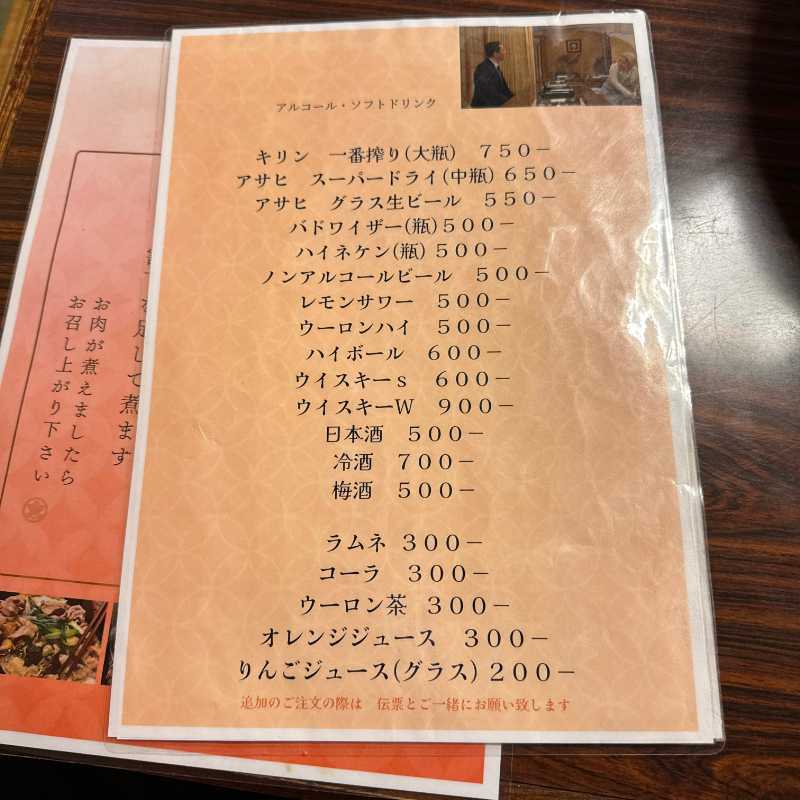 アルコール・ソフトドリンク
キリン　一番搾り(大瓶)　７５０－
アサヒ　スーパードライ(中瓶) ６５０－
アサヒ　グラス生ビール　５５０－
バドワイザー(瓶) ５００－
ハイネケン(瓶) ５００－
ノンアルコールビール　５００－
レモンサワー　５００－
ウーロンハイ　５００－
ハイボール　６００－
ウイスキーｓ　６００－
ウイスキーＷ　９００－
日本酒　５００－
冷酒　７００－
梅酒　５００－
ラムネ ３００－
コーラ　３００－
ウーロン茶 ３００－
オレンジジュース　３００－
りんごジュース(グラス) ２００－
追加のご注文の際は　伝票とご一緒にお願い致します
煮ます
お肉が煮えましたら
お召し上がり下さい